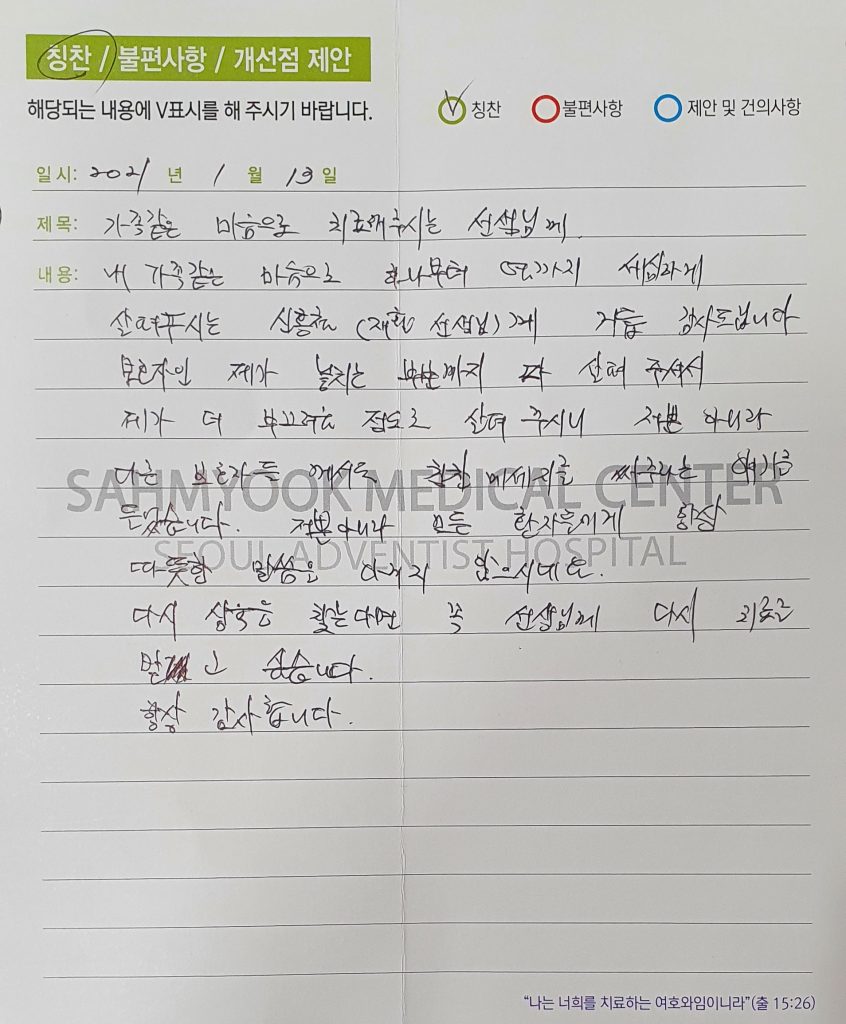 칭찬 / 불편사항 / 개선점 제안
해당되는 내용에 V표시를 해 주시기 바랍니다. V 칭찬 불편사항 제안 및 건의사항
일시: 2021 년 1 월 13 일
제목: 가족같은 마음으로 치료해주시는 선생님께.
내용: 내 가족같은 마음으로 하나부터 열까지 세심하게
살펴주시는 (재활 선생님)께 거듭 감사드립니다
보호자인 제가 놓치는 부분까지 다 살펴 주셔서
제가 더 부끄러울 정도로 살펴 주시니 저뿐 아니라
다른 보호자들 에게서도 칭찬 메세지를 써주라는 얘기를
SAHMYOOK MEDICAL CENTER
들었습니다. 저뿐아니라 모든 환자분에게 항상
SEOUL ADVENTIST HOSPITAL
따뜻한 말씀을 아끼지 않으시네요.
다시 삼육을 찾는다면 꼭 선생님께 다시 치료를
받고 싶습니다.
항상 감사합니다.
“나는 너희를 치료하는 여호와임이니라”(출 15:26)